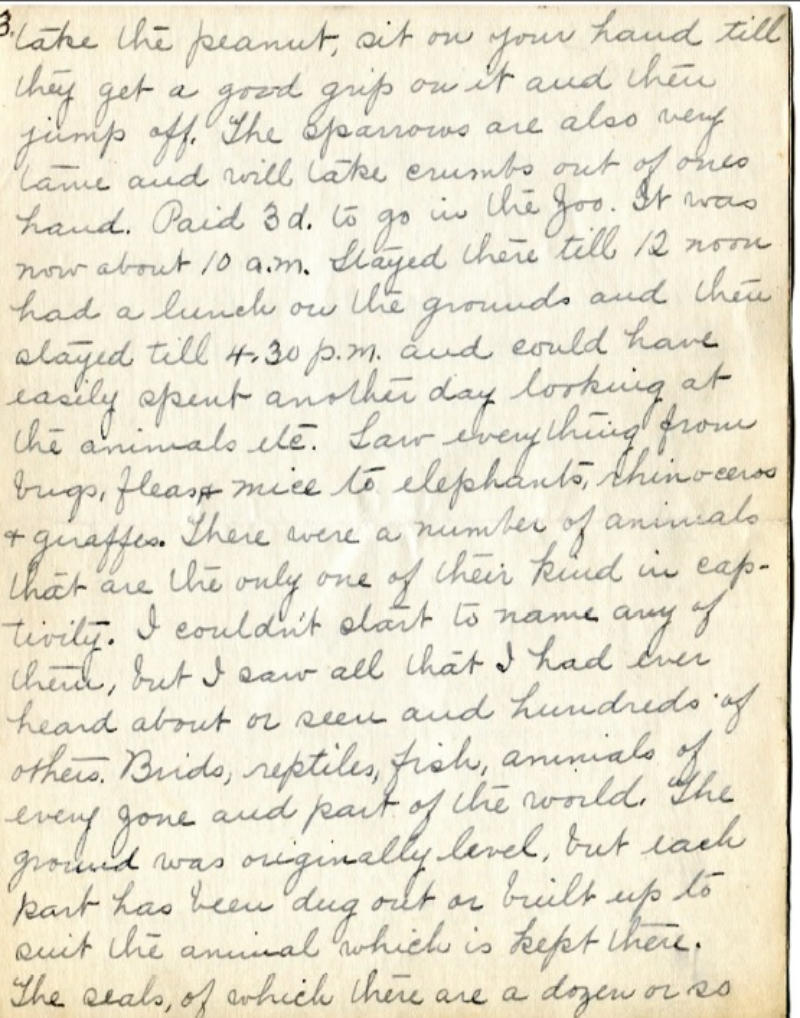 3.
take the peanut, sit on your hand till
they get a good grip on it and then
jump off. The sparrows are also very
tame and will take crumbs out of ones
hand. Paid 3d. to go in the Zoo. It was
now about 10 a.m. Stayed there till 12 noon
had a lunch on the grounds and then
stayed till 4.30 p.m. and could have
easily spent another day looking at
the animals etc. Saw everything from
bugs, fleas, & mice to elephants, rhinoceros
& giraffes. There were a number of animals
that are the only one of their kind in cap-
tivity. I couldn't start to name any of
them, but I saw all that I had ever
heard about or seen and hundreds of
others. Birds, reptiles, fish, animals of
every zone and part of the world. The
ground was originally level, but each
part has been dug out or built up to
suit the animal which is kept there.
The seals, of which there are a dozen or so